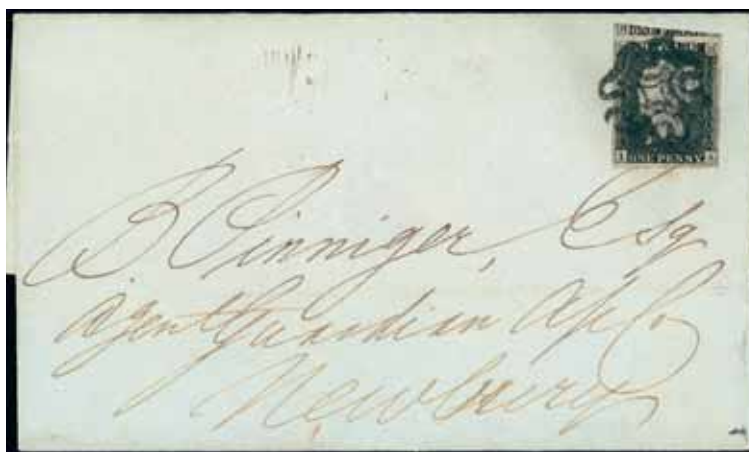 ONE PENNY
B Pinniger, Esq
Agent Guardian
Newbury